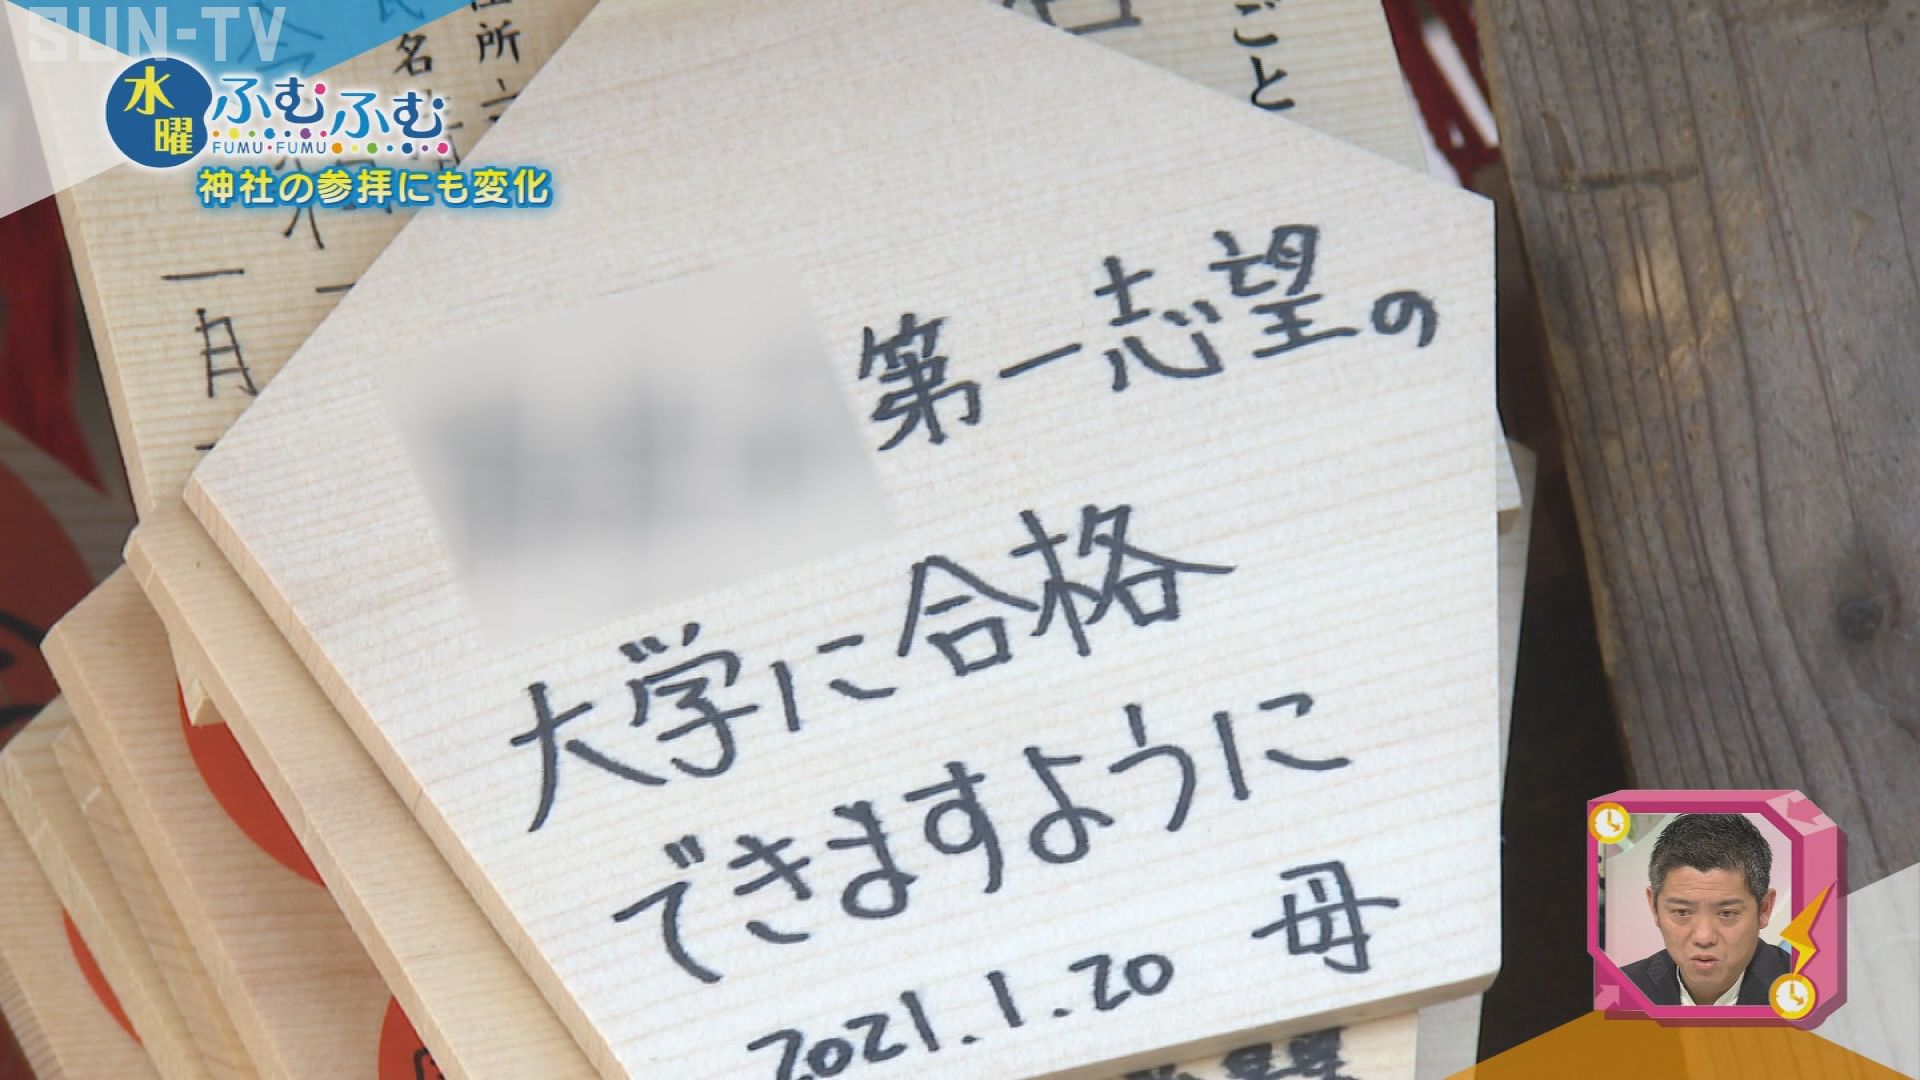 SUN-TV
水曜
ふむふむ
FUMU・FUMU
神社の参拝にも変化
住所
氏名
一月
ごと
第一志望の
大学に合格
できますように
2021.1.20 母